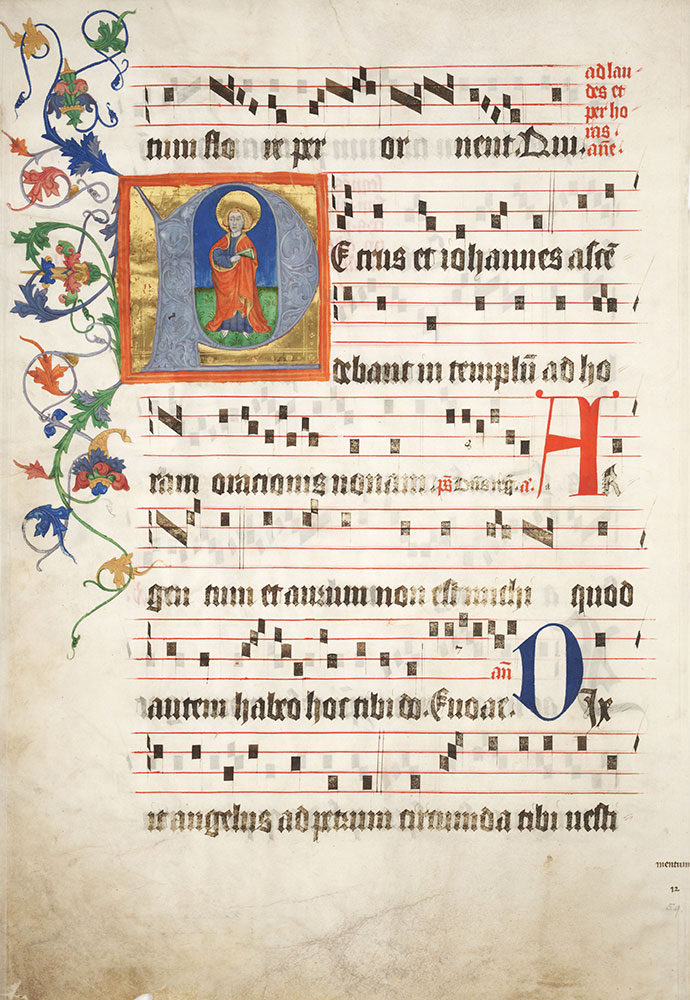 tum sto re per or nent Diu.
ad lau
des et
per ho
ras.
añe.
PEtrus et iohannes ascē
debant in templū ad ho
ram oracionis nonam. a. AR
gen tum et aurum non est michi quod
autem habeo hoc tibi do. Euoae. añ DIx
it angelus ad petrum circumda tibi uesti
mentum
12
59